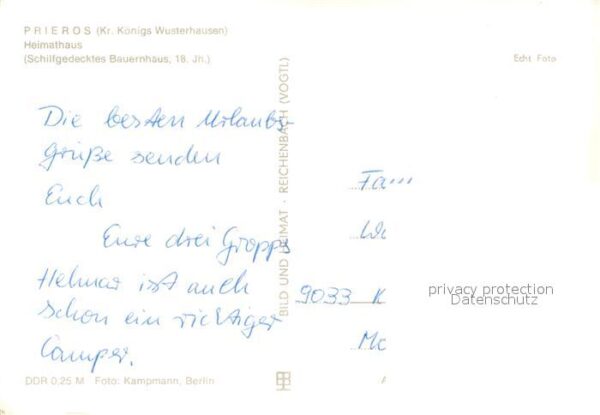 PRIEROS (Kr. Königs Wusterhausen)
Heimathaus
(Schilfgedecktes Bauernhaus, 18. Jh.)
Echt Foto
Die besten Urlaubs-
grüße senden
Euch
Eure drei Gropps
Helmar ist auch
schon ein richtiger
Camper.
BILD UND HEIMAT · REICHENBACH (VOGTL)
Fa
9033 K
privacy protection
Datenschutz
DDR 0,25 M Foto: Kampmann, Berlin